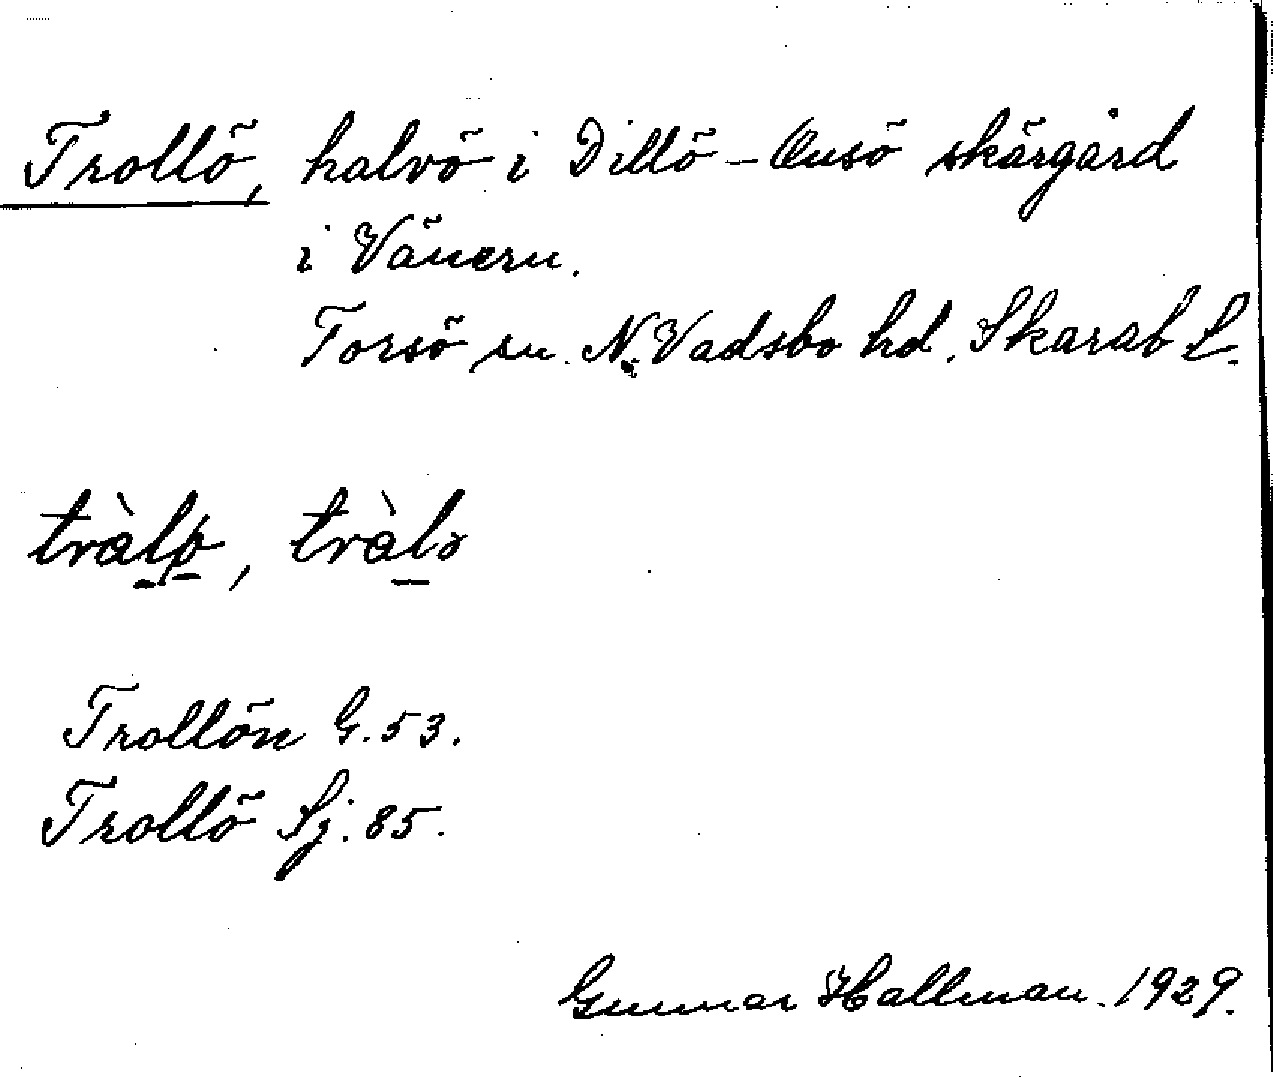 Trollö, halvö i Dillö - Onsö skärgård
i Vänern.
Torsö sn. N. Vadsbo hd. Skarab L.
tràlø, tràlo
Trollön G. 53.
Trollö Sj. 85.
Gunnar Hallman. 1929.